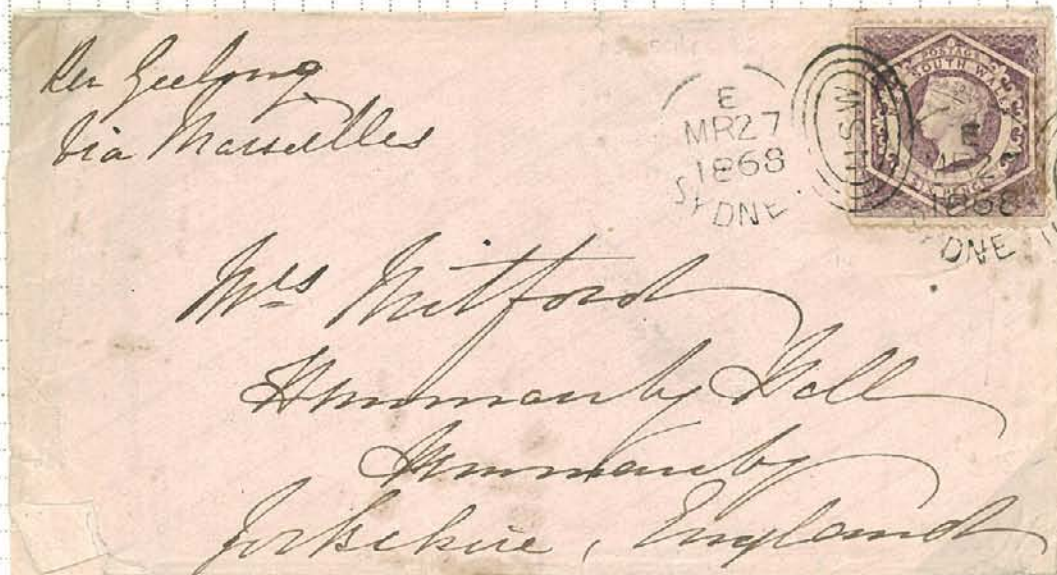 Per Geelong
Via Marseilles
E
MR 27
1868
SYDNE
N.S.W
POSTAGE
SOUTH WAL
SIX PENCE
E
MR 27
1868
DNE
Mrs Mitford
Hunmanby Hall
Hunmanby
Yorkshire, England